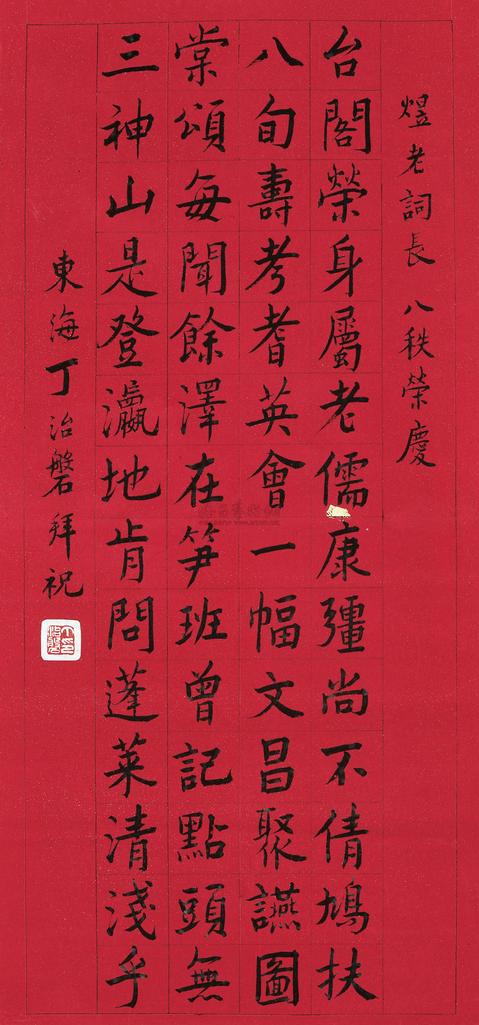 煜老詞長 八秩榮慶
台閣榮身屬老儒康彊尚不倩鳩扶
八旬壽考耆英會一幅文昌聚讌圖
棠頌每聞餘澤在笋班曾記點頭無
三神山是登瀛地肯問蓬萊清淺乎
東海丁治磐拜祝